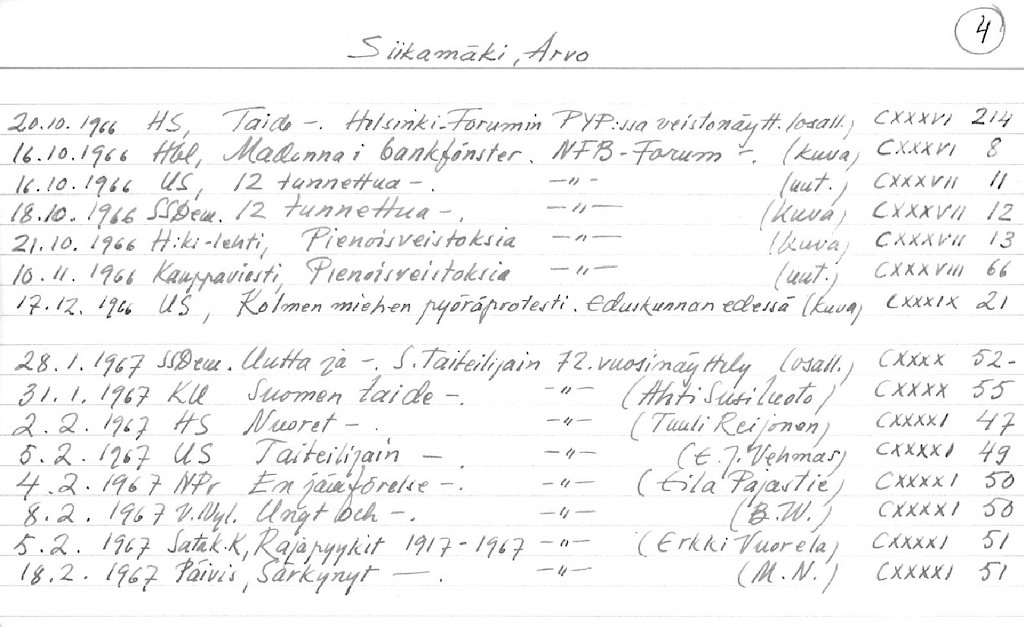 4
Siikamäki, Arvo
20.10.1966 HS, Taide -. Helsinki-Forumin PYP:ssa veistonäytt. (osall.) CXXXVI 214
16.10.1966 Hbl, Madonna i bankfönster. NFB-Forum -. (kuva) CXXXVI 8
16.10.1966 US, 12 tunnettua -. -"- (uut.) CXXXVII 11
18.10.1966 SSDem. 12 tunnettua -. -"- (kuva) CXXXVII 12
21.10.1966 H:ki-lehti, Pienoisveistoksia -"- (kuva) CXXXVII 13
10.11.1966 Kauppaviesti, Pienoisveistoksia -"- (uut.) CXXXVIII 66
17.12.1966 US, Kolmen miehen pyöräprotesti. eduskunnan edessä (kuva) CXXXIX 21
28.1.1967 SSDem. Uutta ja -. S. Taiteilijain 72. vuosinäyttely (osall.) CXXXX 52-
31.1.1967 KU Suomen taide -. -"- (Ahti Susiluoto) CXXXX 55
2.2.1967 HS Nuoret -. -"- (Tuuli Reijonen) CXXXXI 47
5.2.1967 US Taiteilijain -. -"- (E.J. Vehmas) CXXXXI 49
4.2.1967 NPr En jämförelse -. -"- (Eila Pajastie) CXXXXI 50
8.2.1967 V.Nyl. Ungt och -. -"- (B.W.) CXXXXI 50
5.2.1967 Satak.K, Rajapyykit 1917-1967 -"- (Erkki Vuorela) CXXXXI 51
18.2.1967 Päivis, Särkynyt -. -"- (M.N.) CXXXXI 51